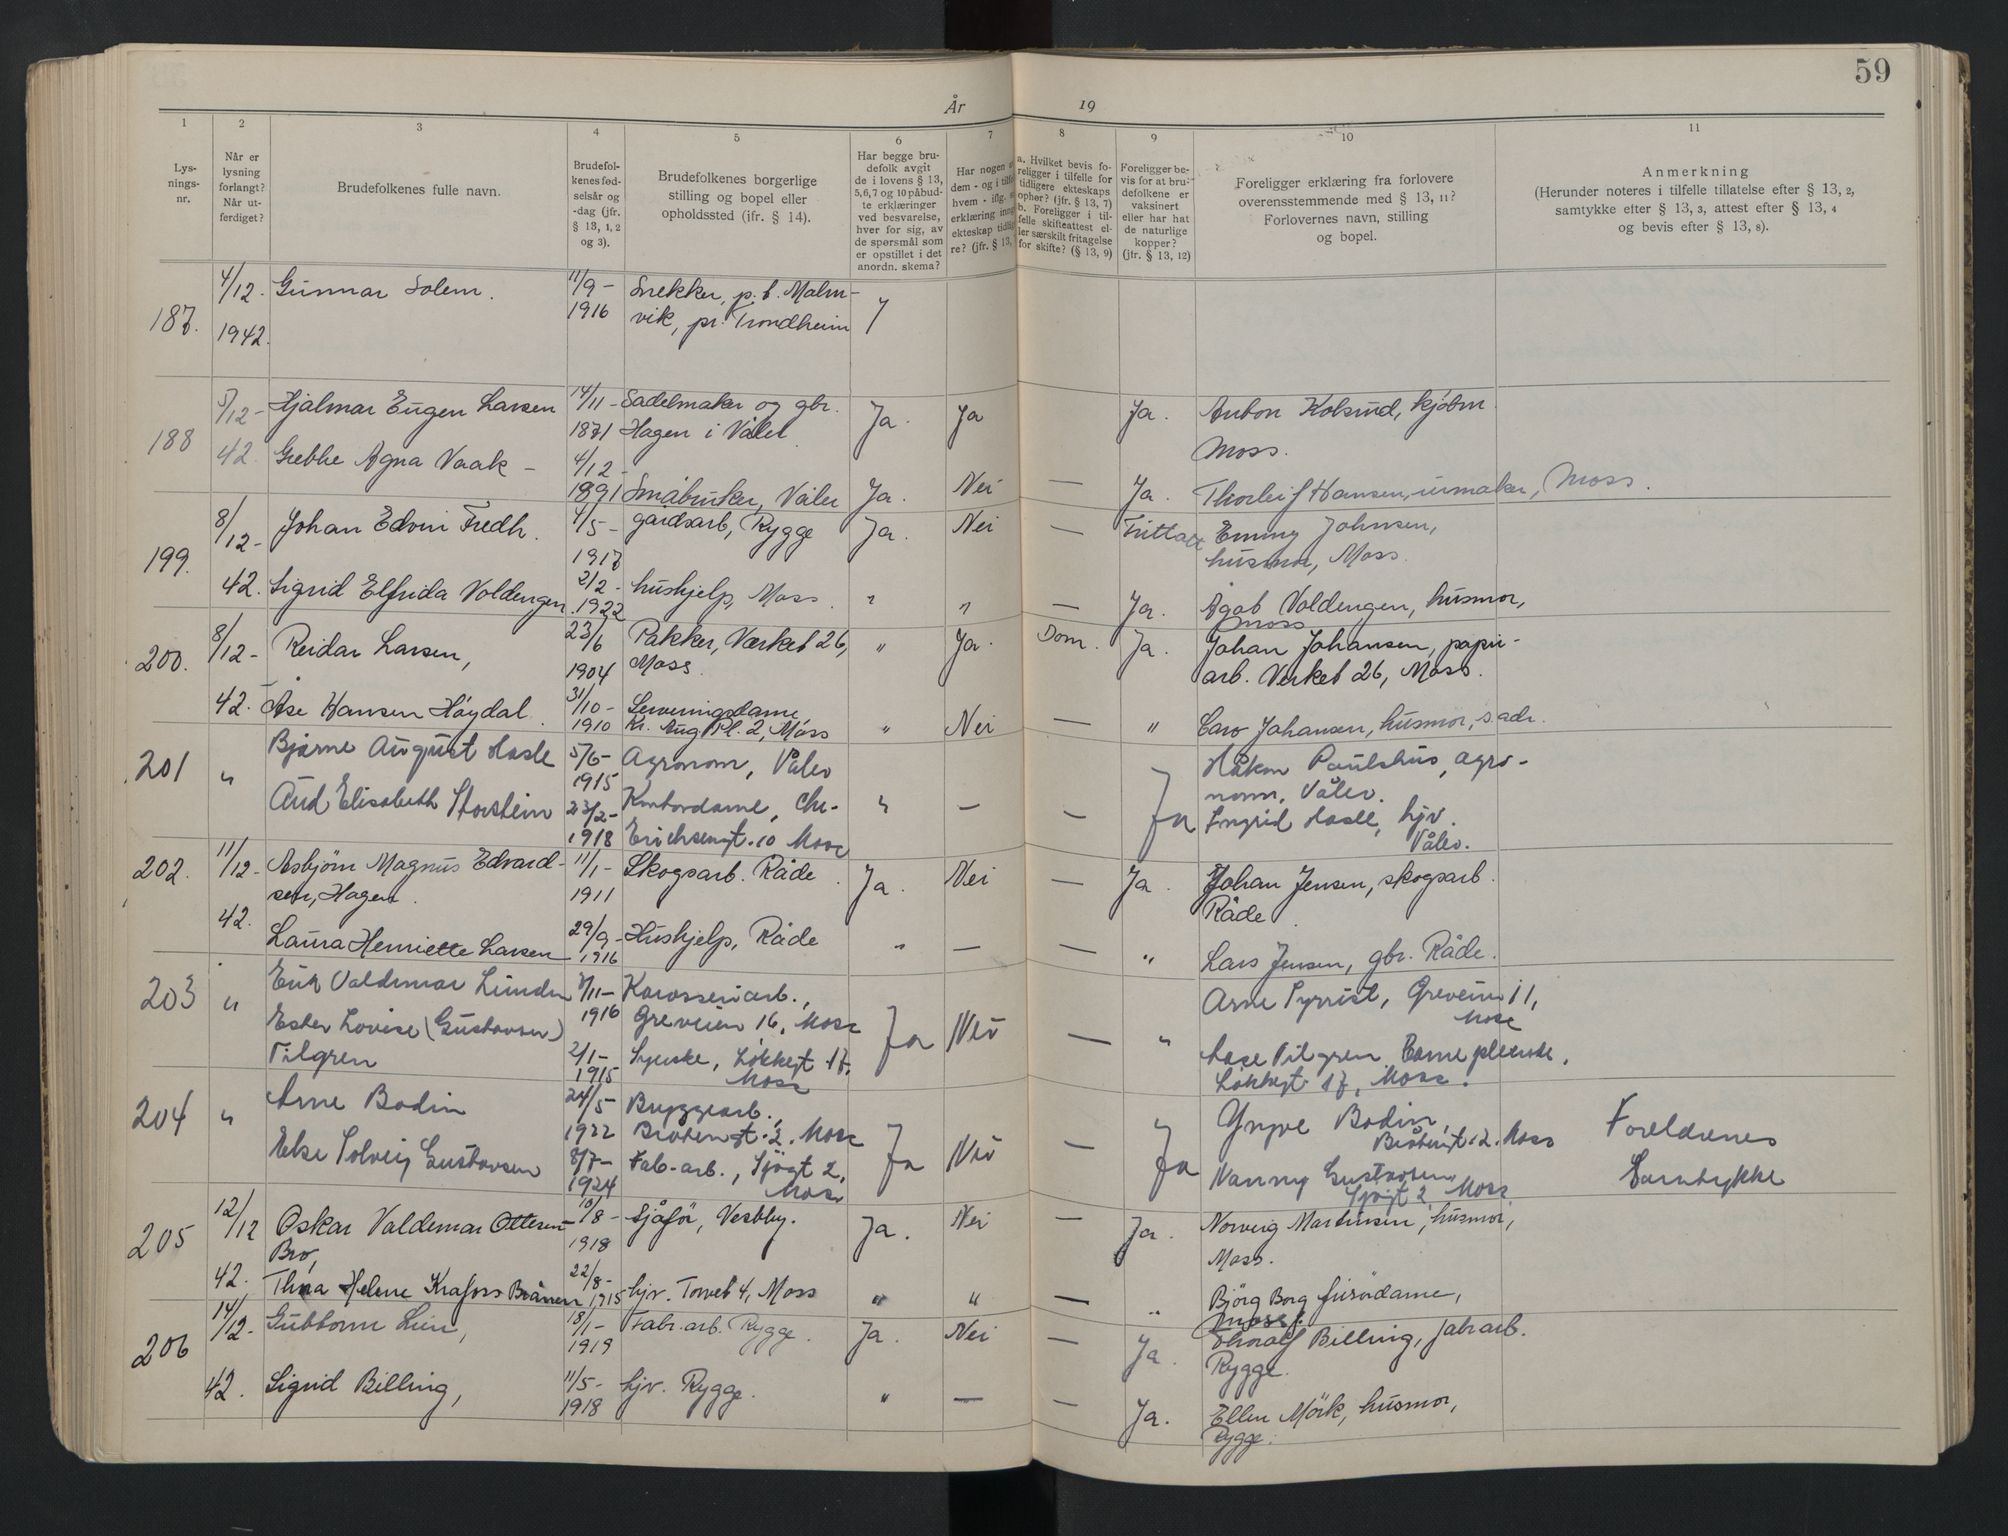 59
År 19
1 2 3 4 5 6 7 8 9 10 11
Lys-
nings-
nr.
Når er
lysning
forlangt?
Når ut-
ferdiget?
Brudefolkenes fulle navn.
Brudefol-
kenes fød-
selsår og
-dag (jfr.
§ 13, 1, 2
og 3).
Brudefolkenes borgerlige
stilling og bopel eller
opholdssted (ifr. § 14).
Har begge bru-
defolk avgit
de i lovens § 13,
5,6,7 og 10 påbud-
te erklæringer
ved besvarelse,
hver for sig, av
de spørsmål som
er opstillet i det
anordn. skema?
Har nogen a
dem - og i tilfe
hvem - iflg.
erklæring inng
ekteskap tidlig
re? (jfr. § 13,
a. Hvilket bevis fo-
religger i tilfelle for
tidligere ekteskaps
ophør? (jfr. § 13, 7)
b. Foreligger i til-
felle skifteattest el-
ler særskilt fritagelse
for skifte? (§ 13, 9)
Foreligger be-
vis for at bru-
defolkene er
vaksinert
eller har hat
de naturlige
kopper?
(jtr. § 13, 12)
Foreligger erklæring fra forlovere
overensstemmende med § 13, 11?
Forlovernes navn, stilling
og bopel.
Anmerkning
(Herunder noteres i tilfelle tillatelse efter § 13, 2,
samtykke efter § 13, 3, attest efter § 13, 4
og bevis efter § 13, 8).
187. 4/12. 1942. Gunnar Solem. 11/9- 1916 Snekker, p.t. Malm-
vik, pr. Trondheim
188 5/12- 42. Hjalmar Eugen Larsen 14/11- 1871 Sadelmaker og gbr.
Hagen i Våler Ja. Ja Ja. Anton Kolsrud, kjøbm
Moss.
Grethe Agna Vaak - 4/12- 1891 Småbruker, Våler Ja. Nei — Ja. Thorleif Hansen, urmaker, Moss.
199. 8/12- 42. Johan Edvin Fredh. 4/5- 1917 gårdsarb, Rygge Ja. Nei — Fritatt Emmy Johnsen,
husmor, Moss.
Sigrid Elfrida Voldengen 2/2- 1922 hushjelp, Moss. " " — Ja. Agot Voldengen, husmor,
Moss
200. 8/12- 42. Reidar Larsen, 23/6 1904 Pakker, Værket 26,
Moss. " Ja. Dom. Ja. Johan Johansen, papir-
arb. Verket 26, Moss.
Åse Hansen Høydal. 31/10- 1910 Serveringsdame
Kr. Aug Pl. 2, Moss " Nei — " Caro Johansen, husmor, s adr.
201 " Bjarne August Hasle 5/6- 1915 Agronom, Våler Håkon Paulshus, agro-
nom, Våler.
Aud Elisabeth Storstein 23/2- 1918 Kontordame, Chr-
Erichsensgt. 10 Moss " — — Ja Ingrid Hasle, hjv.
Våler.
202. 11/12- 42. Asbjørn Magnus Edvard-
sen, Hagen. 11/1- 1911 Skogsarb. Råde. Ja. Nei — Ja. Johan Jensen, skogsarb.
Råde
Laura Henriette Larsen 29/9- 1916 Hushjelp, Råde " — — " Lars Jensen, gbr. Råde.
203 " Erik Valdemar Lunden 7/11- 1916 Karosseriarb.,
Greveien 16, Moss Ja Nei — " Arne Pyrrist, Greveien 11,
Moss
Ester Lovise (Gustavsen)
Tilgren 2/1- 1915 Syerske, Løkkegt 17,
Moss Aase Tilgren, Barnepleierske,
Løkkegt 17, Moss.
204 " Arne Bodin 24/5- 1922 Bryggearb.,
Brotengt. 2. Moss Ja Nei — Ja Yngve Bodin,
Brotengt. 2. Moss Foreldrenes
Samtykke
Else Solveig Gustavsen 8/7- 1924 Fab-arb., Sjøgt 2,
Moss Nanny Gustavsen
Sjøgt 2 Moss
205 12/12 42. Oskar Valdemar Ottesen
Bro, 10/8- 1918 Sjåfør, Vestby. Ja. Nei — Ja. Norveig Martinsen, husmor,
Moss.
Thea Helene Krafoss Brånen 22/8- 1915 hjv. Torvet 4, Moss " " — " Bjørg Borg frisørdame,
Moss.
206 14/12- 42. Guttorm Lien, 18/1- 1919 Fabr.arb. Rygge. Ja. Nei — Ja. Thoralf Billing, fabr.arb.
Rygge.
Sigrid Billing, 11/5- 1918 hjv. Rygge. " — — Ja. Ellen Mørk, husmor,
Rygge.